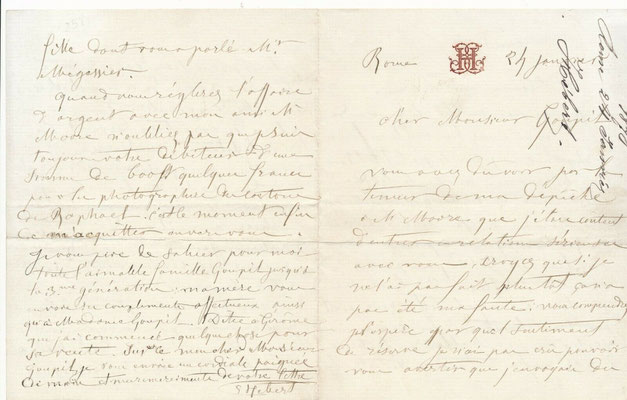 Rome 24 Janvier
Rome 24 Janvier
1870
Hébert.
Cher Monsieur Goupil
vous avez dû voir par la
teneur de ma dépêche
à Mr Moore que j'étais content
d'entrer en relations sérieuses
avec vous. croyez que si je
ne l'ai pas fait plutôt ça n'a
pas été ma faute; vous comprendrez
j'espère par quel sentiment
de réserve je n'ai pas cru pouvoir
vous avertir que j'envoyais du
tête dont vous a parlé Mr
Mégessier.
Quand vous réglerez l'affaire
d'argent avec mon ami Mr
Moore n'oubliez pas que je suis
toujours votre débiteur d'une
somme de 600 f quelques francs
pour les photographies des cartons
de Raphael. c'est le moment
de m'acquitter envers vous.
Je vous prie de saluer pour moi
toute l'aimable famille Goupil jusqu'à
la 3me génération. ma mère vous
envoie ses compliments affectueux ainsi
qu'à Madame Goupil. Dites à Gérôme
que j'ai commencé quelque chose pour
sa vente. mon cher Monsieur
Goupil, je vous envoie une cordiale poignée
de main et mes remerciements de votre lettre
E Hébert